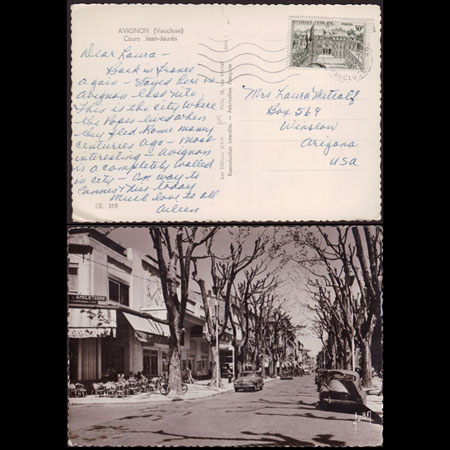 AVIGNON (Vaucluse)
Cours Jean-Jaurès
Dear Laura -
Back in France
again - stayed here in
Avignon last nite.
This is the city where
the Popes lived when
they fled Rome many
centuries ago - Most
interesting - Avignon
is a completely walled
in city - On way to
Cannes this today
Much love to all
Aileen
I.B. 319
REPUBLIQUE FRANÇAISE
POSTES
30F
Mrs Laura Metcalf
Box 569
Winslow
Arizona
USA
ANGLETERRE